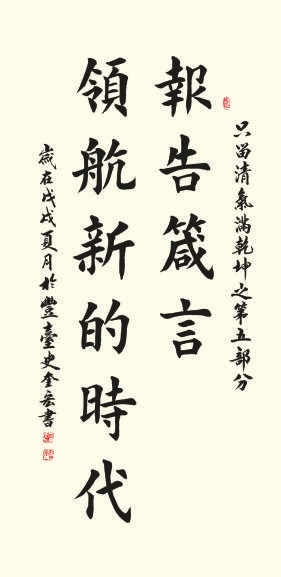 只留清氣滿乾坤之第五部分
報告箴言
領航新的時代
歲在戊戌夏月於豐臺史奎宏書